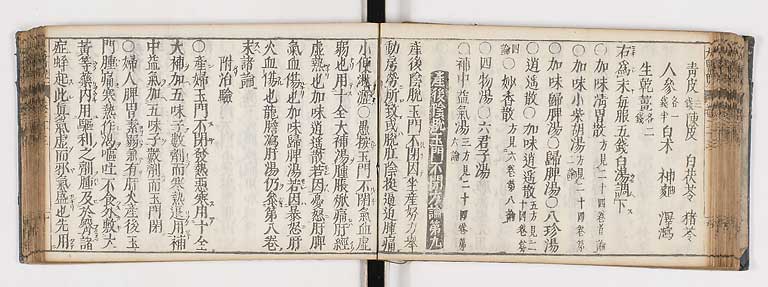 青皮 陳皮 白茯苓 猪苓
人參 各一錢半 白朮 神麴 澤瀉
生乾薑 各二錢
右爲末每服五錢白湯調下
〇加味清胃散 方見二十四卷首論
〇加味小柴胡湯 方見二十四卷第二論
〇加味歸脾湯〇歸脾湯〇八珍湯
〇逍遙散〇加味逍遙散 五方見二十四卷
〇妙香散 方見六卷第八論
〇四物湯〇六君子湯
〇補中益氣湯 三方見二十四卷第六論
產後陰脫玉門不閉方論第九
產後陰脫玉門不閉因坐產努力擧
動房勞所致或脫肛陰挺逼迫腫痛
小便淋瀝〇愚按玉門不閉氣血虛
弱也用十全大補湯腫脹焮痛肝經
虛熱也加味逍遙散若因憂怒肝脾
氣血傷也加味歸脾湯若因暴怒肝
火血傷也龍膽瀉肝湯仍參第八卷
末諸論
附治驗
〇產婦玉門不閉發熱惡寒用十全
大補加五味子數劑而寒熱退用補
中益氣加五味子數劑而玉門閉
〇婦人脾胃素弱兼有肝火產後玉
門腫痛寒熱作渴嘔吐不食外敷大
黃等藥內用驅利之劑腫及於臀諸
症蜂起此眞氣虛而邪氣盛也先用